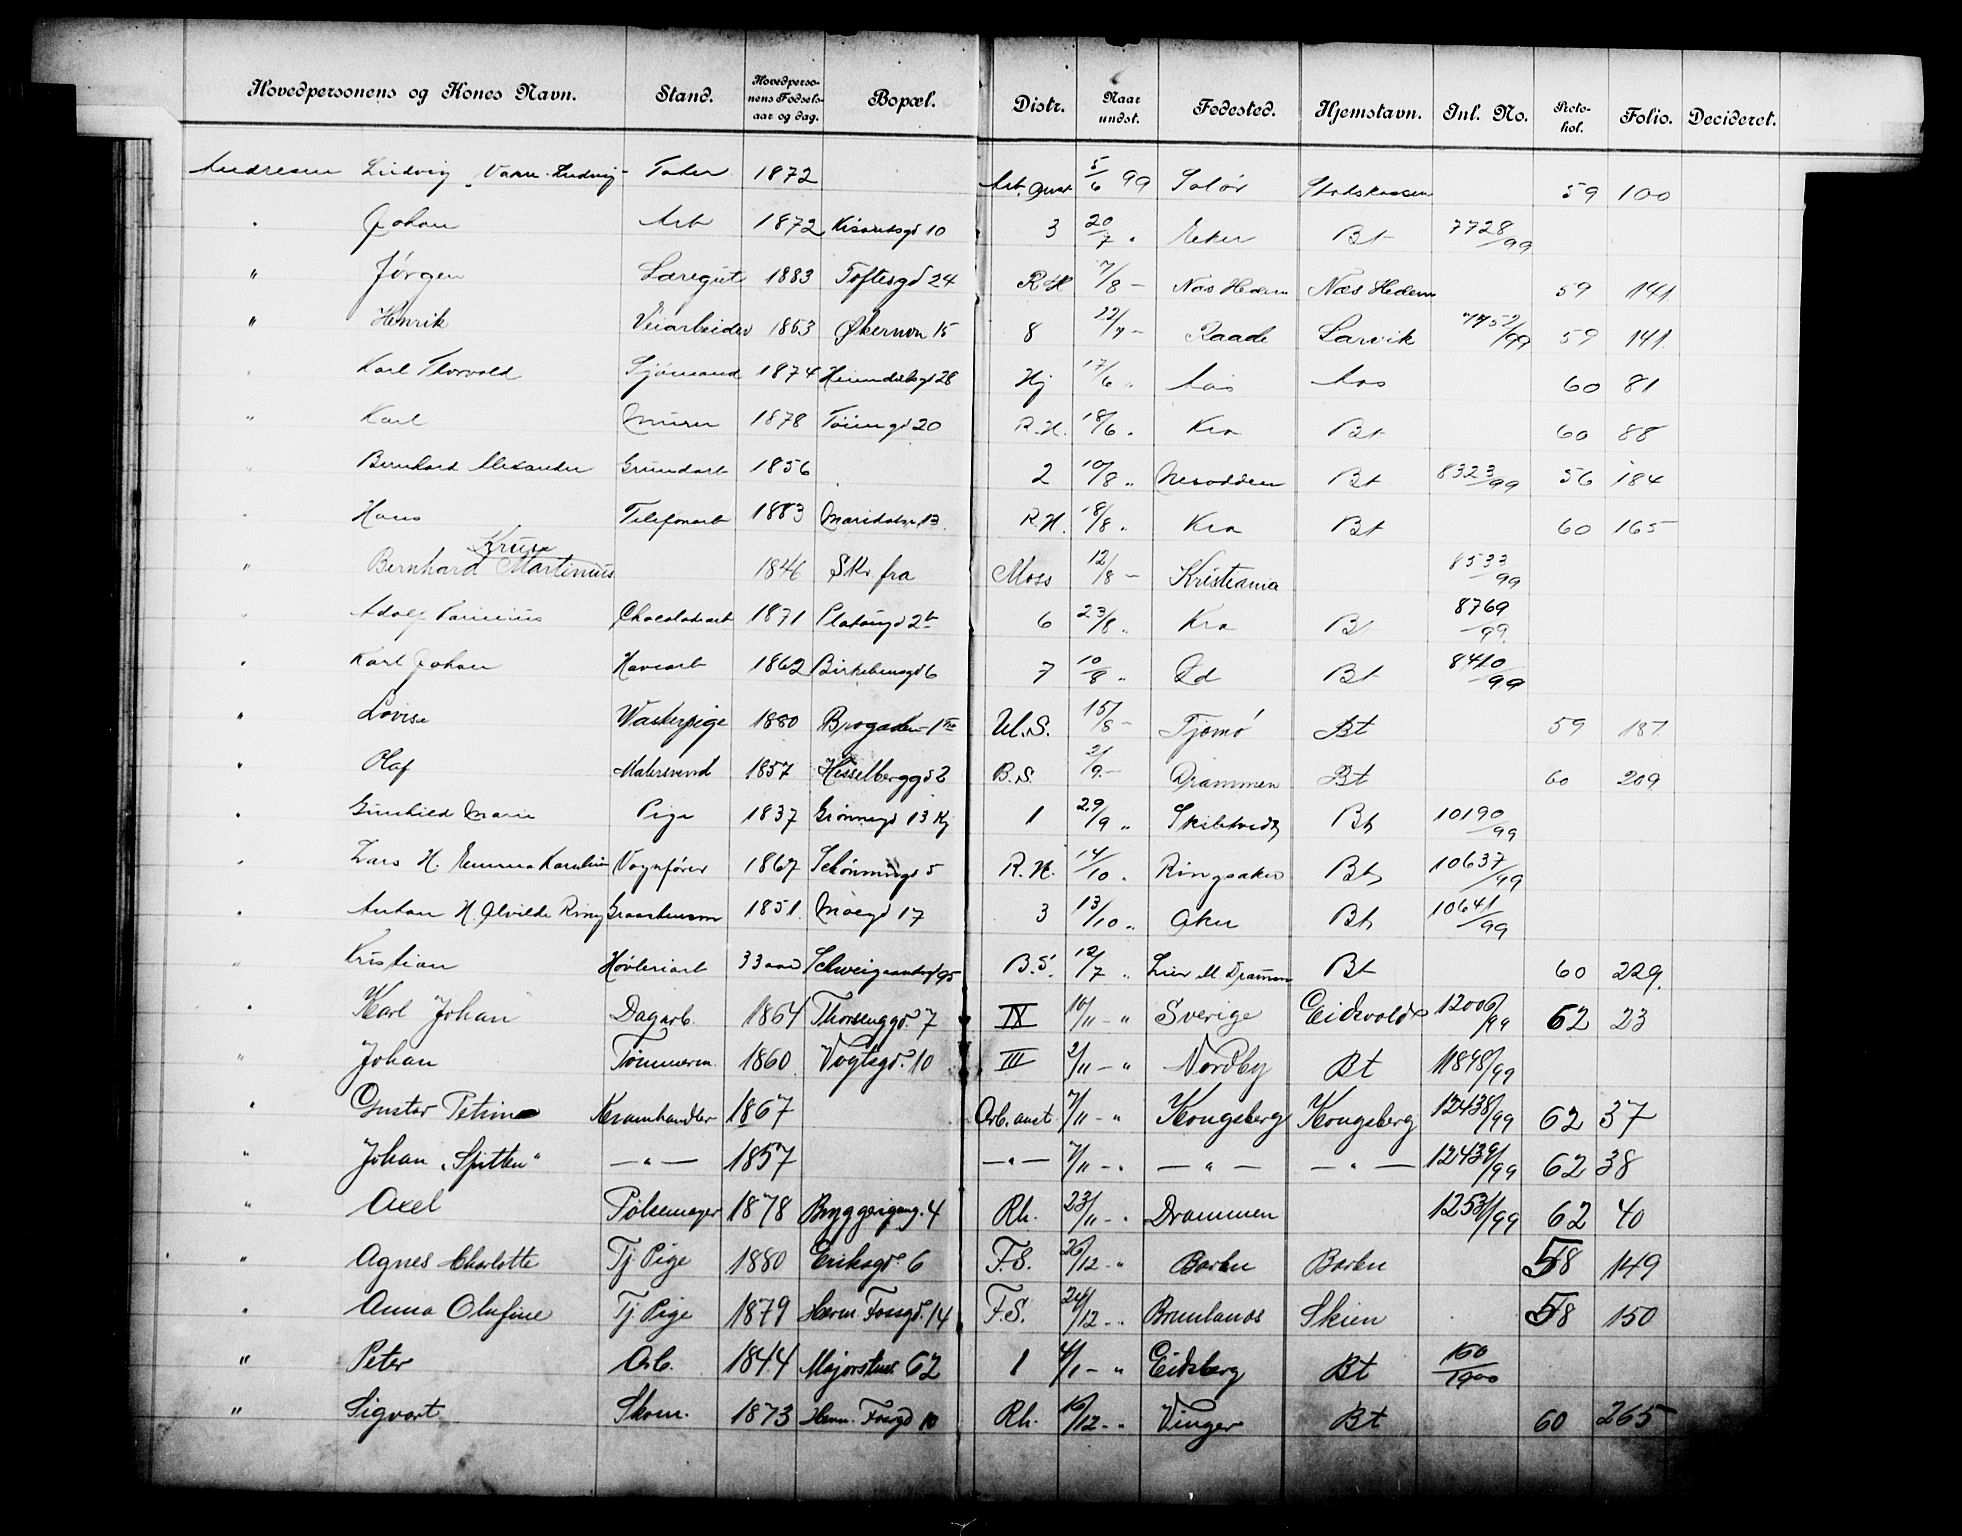 Hovedpersonens og Kones Navn. Stand. Hovedpersonens Fødselsaar og dag. Bopæl. Distr. Naar undst. Fødested. Hjemstavn. Inl. No. Protokol. Folio. Decideret.
Andresen Ludvig Tater 1872 5/6 99 Solør Statskassen 59 100
" Johan Arb 1872 10 3 20/7 " Eker Bt 7728/99
" Jørgen Læregut 1883 Toftesgd 24 R.H 7/8 - Næs Hedem Næs Hedem 59 141
" Henrik Veiarbeider 1853 Økernvn 15 8 22/7 - Raade Larvik 59 141
Karl Thorvald Sjömand 1874 28 Hj 17/6 " Aas Aas 60 81
" Karl Murer 1878 Töiengd 20 R.H. 18/6 " Kra Bt 60 88
" Bernhard Alexander Grundarb 1856 2 10/8 " Nesodden Bt 8323/99 56 184
" Hans Telefonarb 1883 Maridalsv. 13 R.H. 18/8 " Kra Bt 60 165
Kruse
" Bernhard Martinius 1846 Skr fra Moss 12/8 - Kristiania 8533/99
" Adolf Chocoladearb 1871 Platousgd 2b 6 23/8 " Kra Bt 8769/99
" Karl Johan Havearb 1862 Birkebensgd 6 7 10/8 " Od Bt 8410/99
" Lovise Vaskerpige 1880 Brogaden 15/8 - Tjømø Bt 59 187
" Olaf Malersvend 1857 Hesselberggd 2 B.S. 21/9 - Drammen Bt 60 209
" Gunhild Marie Pige 1837 Grønnegd 13 Kj 1 29/9 " Bt 10190/99
" Lars H. Emma Karoline Vognfører 1867 Schønningsgd 5 R.H. 14/10 " Ringsaker Bt 10637/99
" Anton H. Alvilde Ring 1851 Moegd 17 3 13/10 " Aker Bt 10641/99
" Kristian Høvleriarb 33 aar Schweigaardsgd 95 B.S. 12/7 " Lier v. Drammen Bt 60 229.
" Karl Johan Dagarb. 1864 Thorsenggd. 7 IX 10/11 - " Sverige Eidsvold 12006/99 62 23
" Johan Tømmerm. 1860 Vogtsgd. 10 III 2/11 - " Nordby Bt 11848/99
" Gustav Kramhandler 1867 Arb. anst 7/11 - " Kongsberg Kongsberg 12438/99 62 37
" Johan „Spitten" — " — 1857 — " — 7/11 - " — " — — " — 12439/99 62 38
" Axel Pølsemager 1878 Byggerigang. 4 Rh. 23/11 - " Drammen 12531/99 62 40
" Agnes Charlotte Tj. Pige 1880 Eriksgd. 6 F.S. 26/12 - " Borken Borken 58 149
" Anna Olufine Tj. Pige 1879 Herm. Fossgd. 14 F.S. 24/12 - " Brunlanæs Skien 58 150
" Peter Arb. 1844 Majorstuv. 62 1 4/1 - " Eidsberg Bt 160/1900
" Sigvart Skom. 1873 Herm. Fossgd 10 Rh. 16/12 - " Vinger Bt 60 265